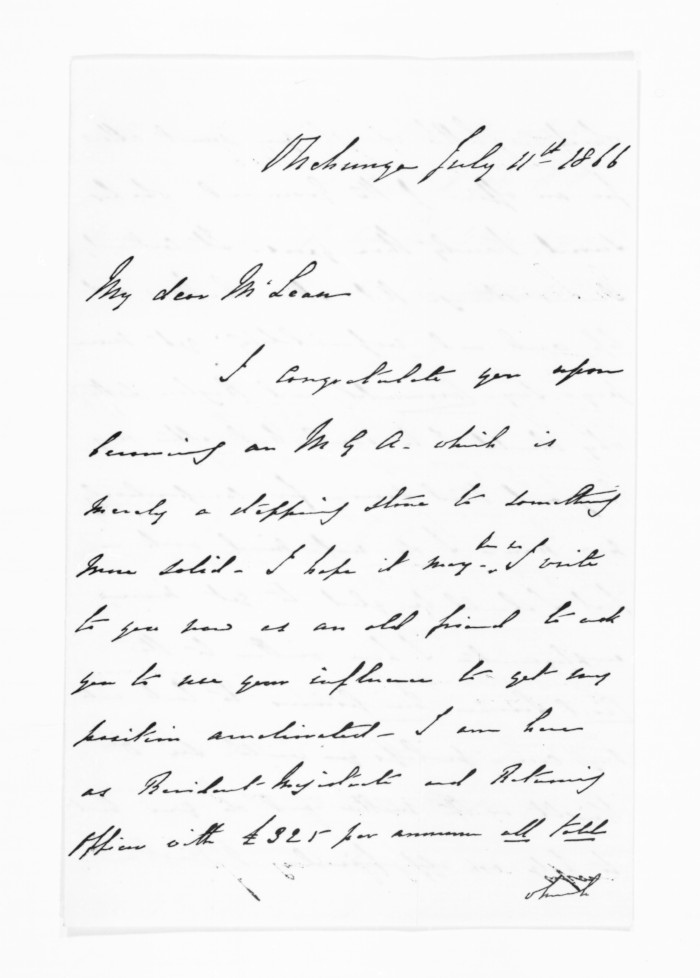 Onehunga July 11th 1866
My dear McLean
I congratulate you upon
becoming an M G A - which is
merely a stepping stone to something
more solid - I hope it may - I write
to you now as an old friend to ask
you to use your influence to get my
position ameliorated - I am here
as Resident Magistrate and Returning
Officer with £325 per annum all told
which